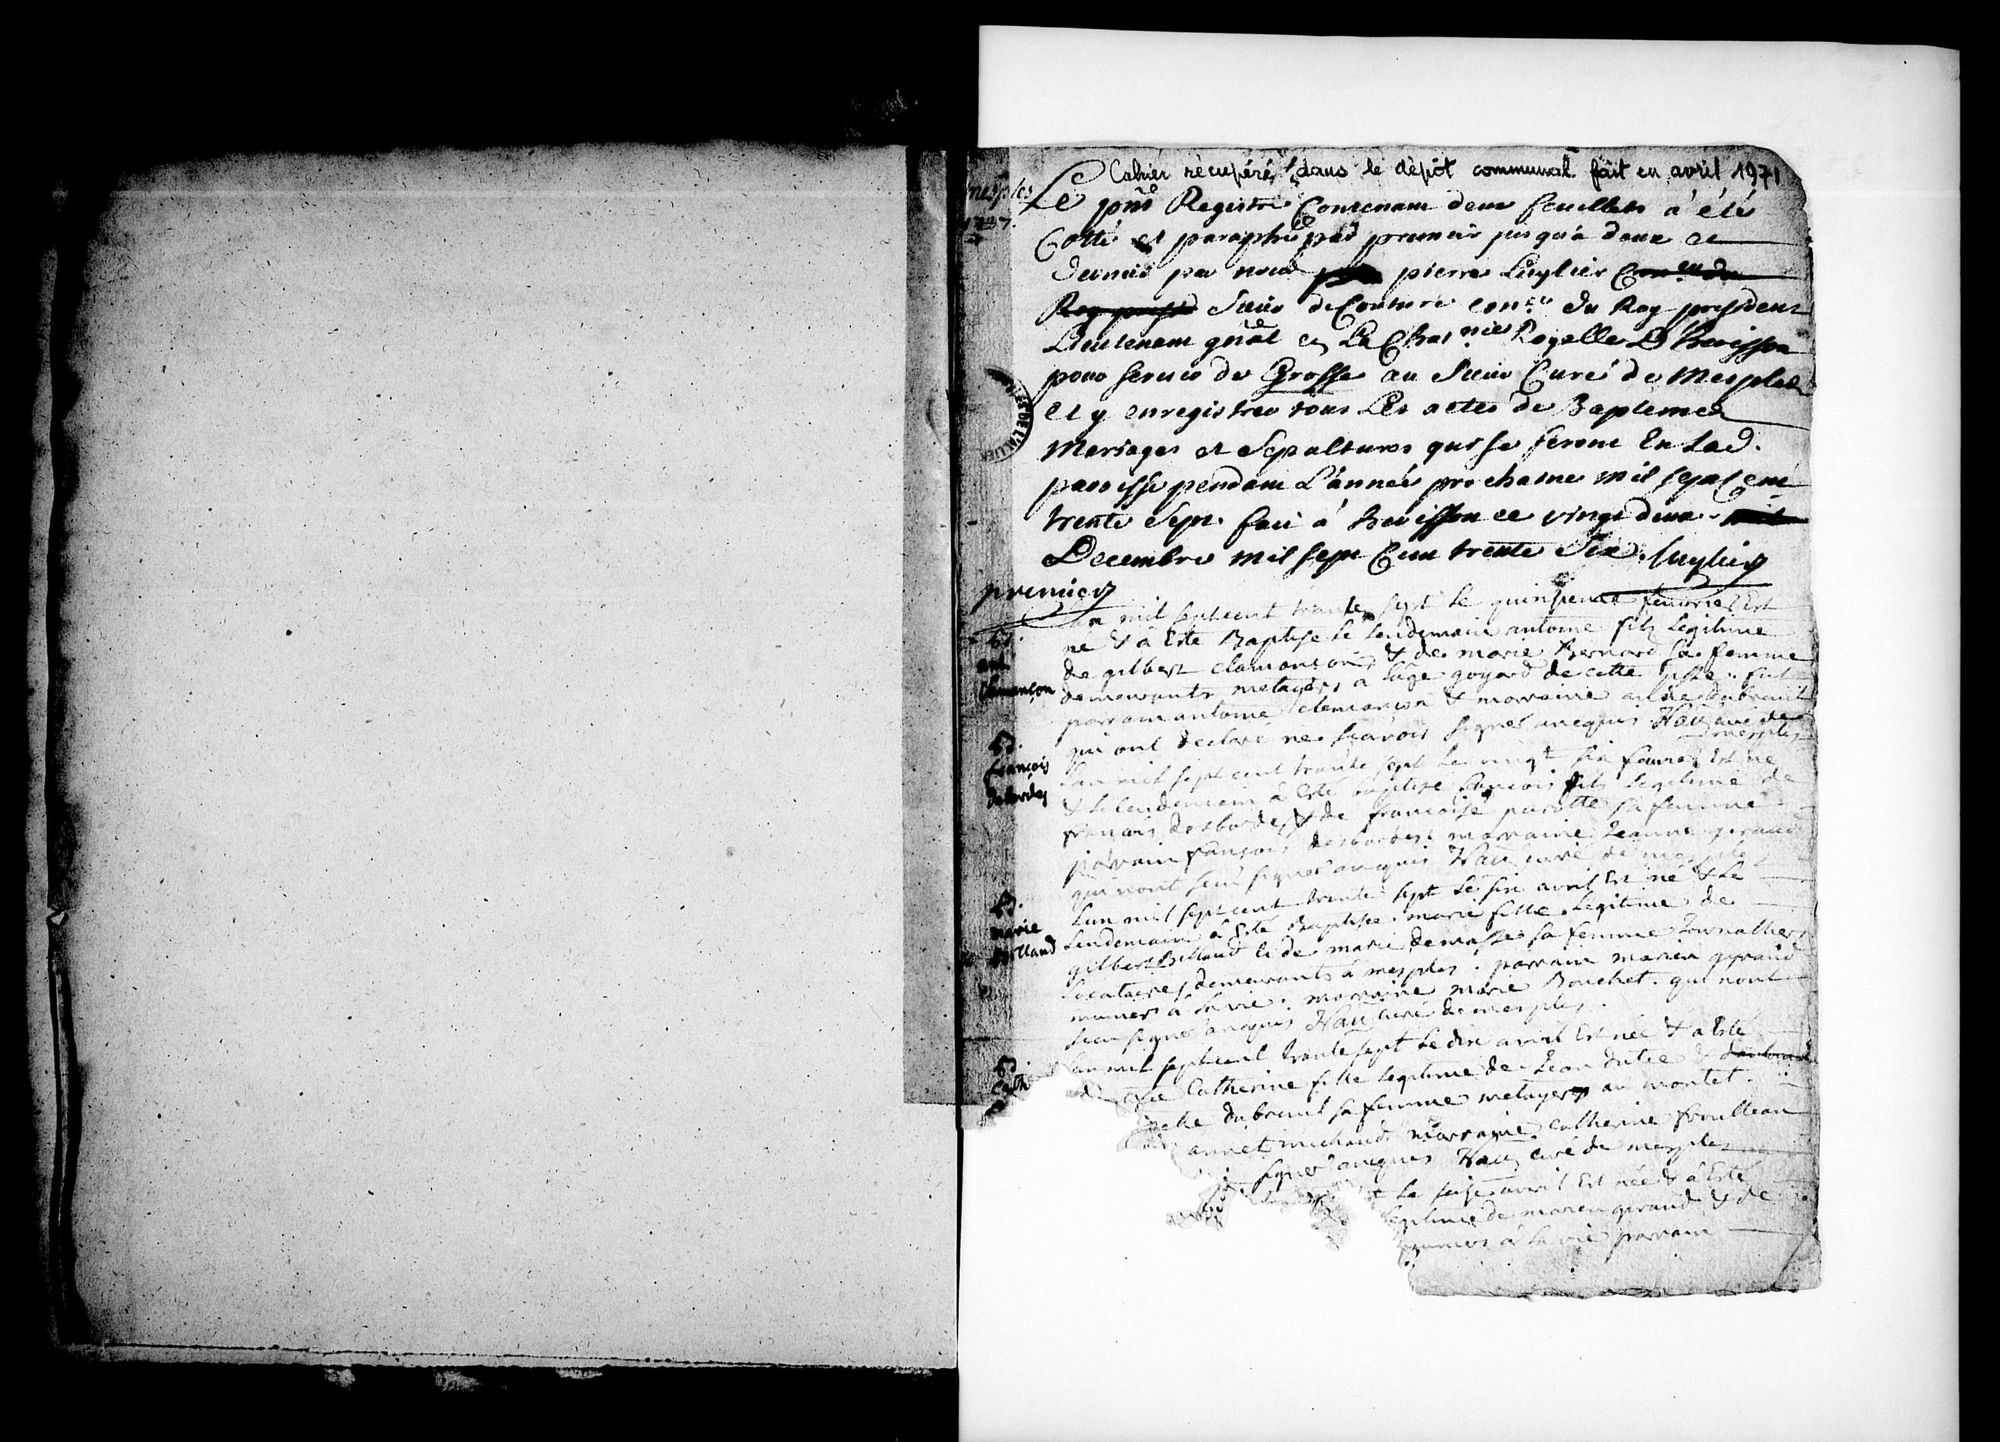 Cahier récupéré dans le dépôt communal fait en avril 1971
mesples
1737.
Le pnt Registre Contenant deux feuillets a été
Cotté et paraphé par premier jusqu'a deux et
dernier par nous pierre Luylier
Sieur de Couture con.er du Roy president
Lieutenant gnãl en La Chas.nie Royalle D'herisson
pour servir de Grosse au Sieur Curé de Mesples
et y enregistrer tous Les actes de Baptemes
Mariages et Sepultures qui se feront En Lad.
paroisse pendant L'année prochaine mil sept cent
trente Sept. fait a herisson ce vingt deux
Decembre mil sept Cent trente Six. Luylier
premier
L'an mil sept cent trante sept le quinsieme feuvrier Est
né & a Esté Baptise le lendemain antoine fils Legitime
de gilbert clemançon & de marie Bernard sa femme
demeurants metayers a l'age goyard de cette psse. fut
parrain antoine clemançon & marraine
qui ont declaré ne sçavoir signer
B.
ant
Clemançon
L'an mil sept cent trante sept Le vingt six feuvrier Est né
& le lendemain a Esté baptise francois fils Legitime de
francois desbordes & de francoise parotte sa femme
parrain françois desbordes marraine Jeanne geraud
qui n'ont sceu signer curé de mesples
B.
françois
desbordes
L'an mil sept cent trante sept Le six avril Est né & le
Lendemain a Esté Baptisee marie fille Legitime de
gilbert Billaud & de marie demasse sa femme Journalliers
Locataires demeurants a mesples. parrain marien geraud
. marraine marie Bouchet. qui n'ont
sceu signer curé de mesples.
B.
marie
Billaud
L'an mil sept cent trante sept Le dix avril Est née & a Esté
Catherine fille Legitime de Jean dutée &
dubreuil sa femme metayers au montet.
annet michaud marraine catherine froulleau
signer curé de mesples
B.
Cath
Le seise avril Est née & a Esté
Legitime de marien geraud & de
a la vie parrain